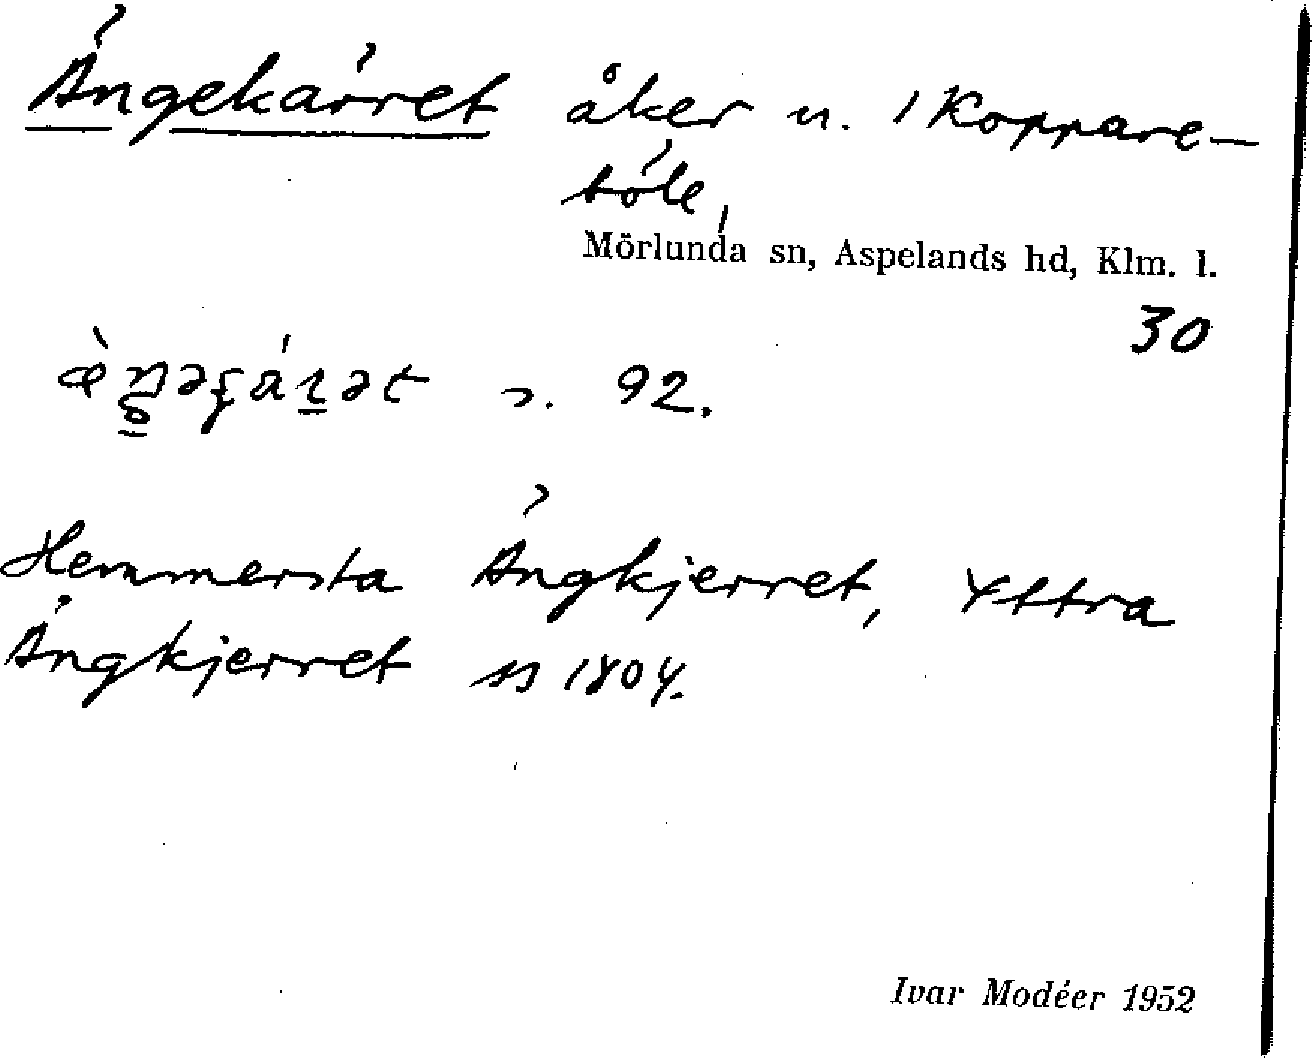 Ängekärret åker u. 1 Koppare-
böle,
Mörlunda sn, Aspelands hd, Klm. l.
30
s. 92.
Hemmersta Ängkjerret, Yttra
Ängkjerret ss 1804.
Ivar Modéer 1952